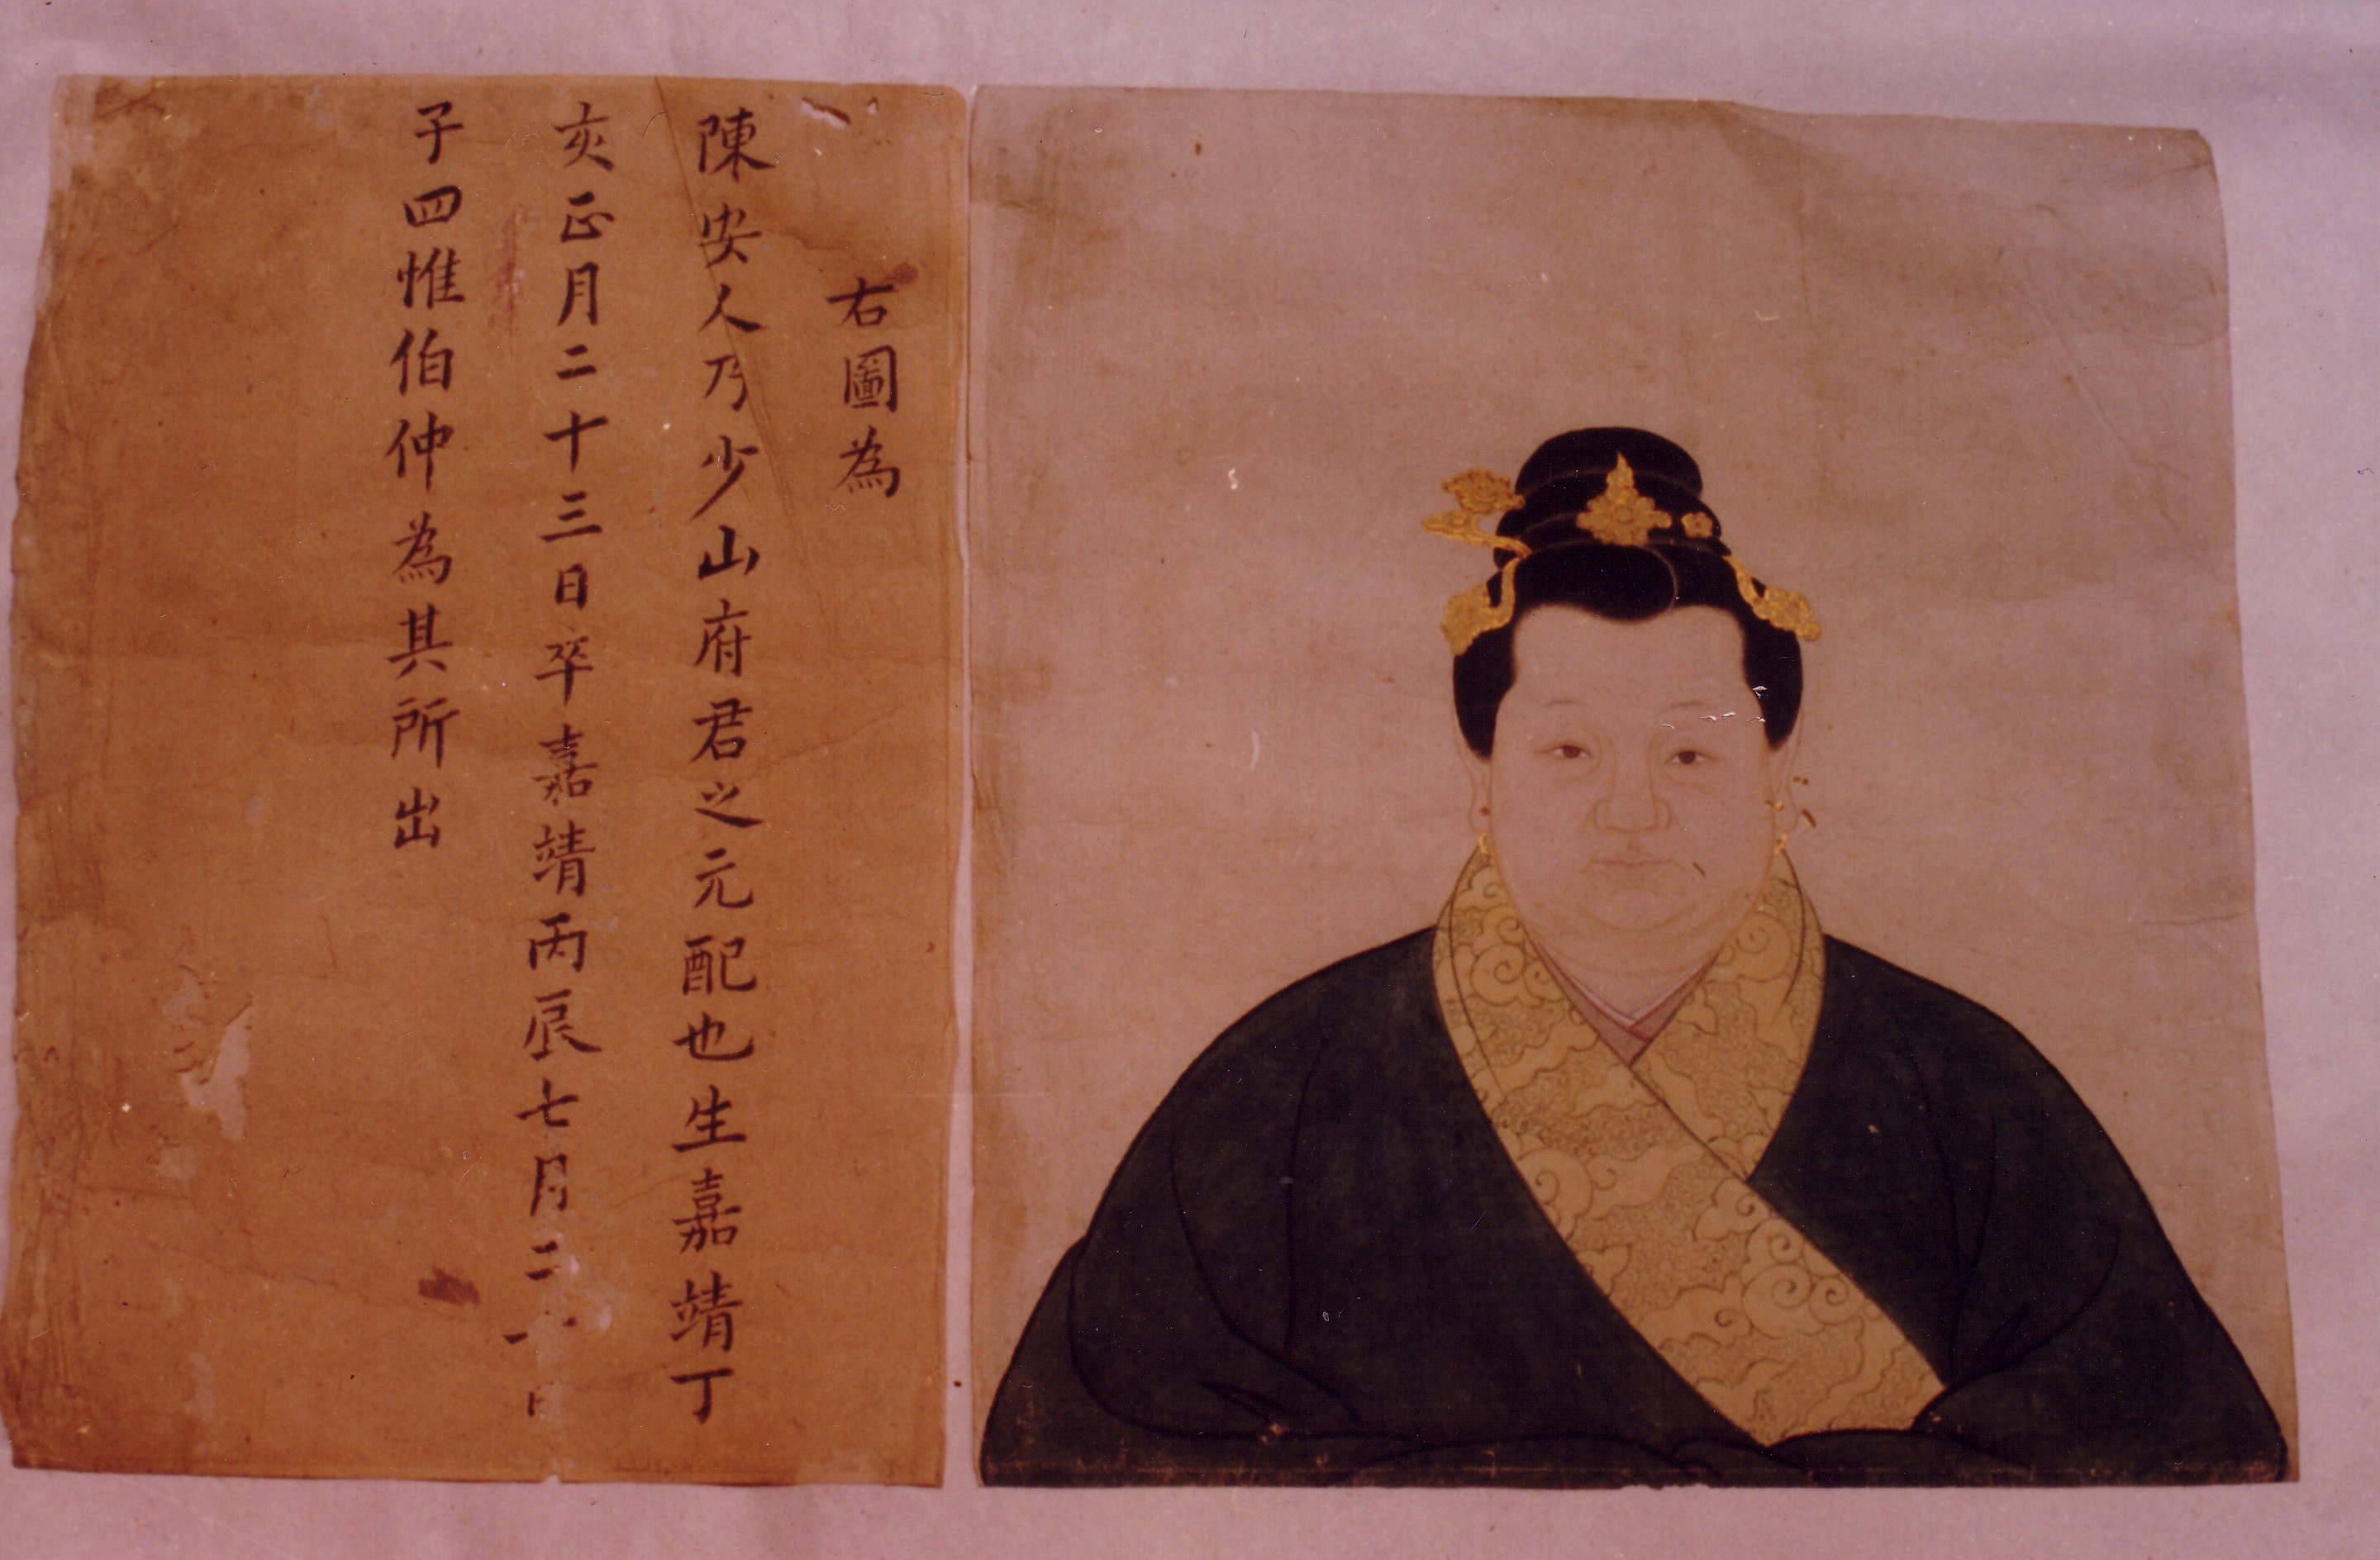 右圖為
陳安人乃少山府君之元配也生嘉靖丁
亥正月二十三日卒嘉靖丙辰七月二日
子四惟伯仲為其所出